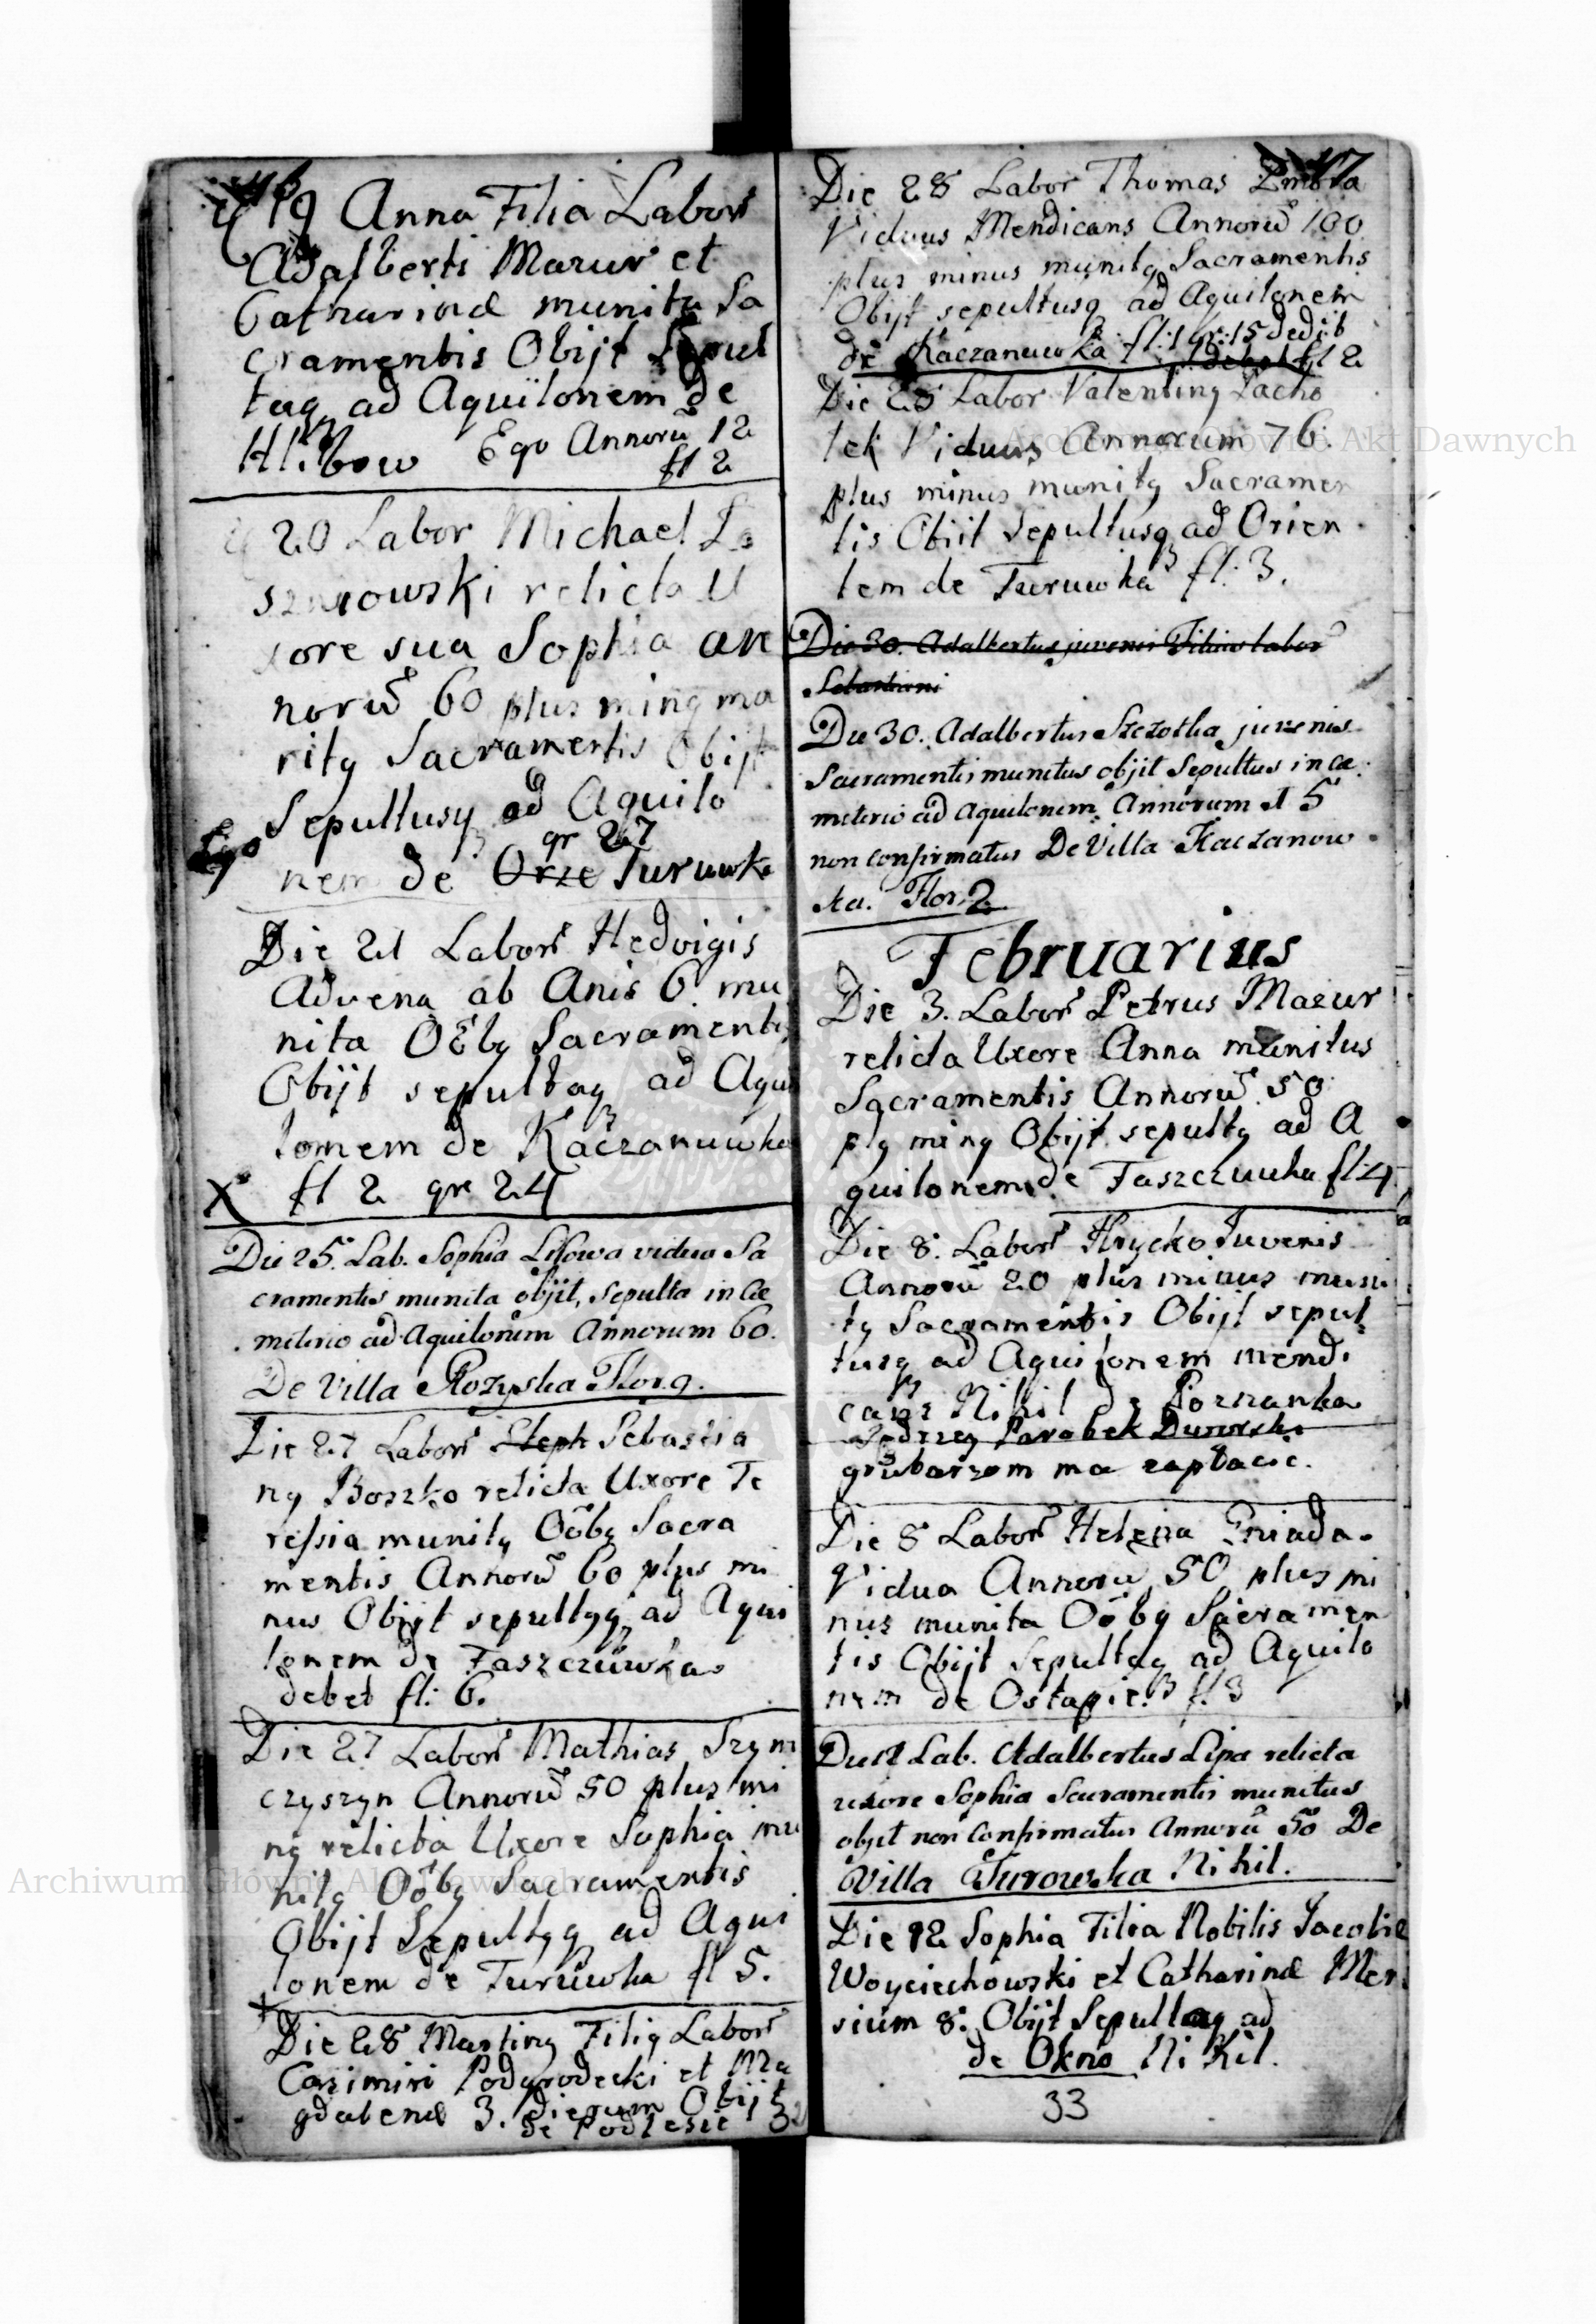 19 Anna Filia Labor
Adalberti Mazur et
Catharinæ munita Sa
cramentis Obijt Sepul
taq ad Aquilonem de
Hlibow Ego Annorũ 12
fl 2
20 Labor Michael
relicta U
xore sua Sophia an
norũ 60 plus minq mu
nitq Sacramentis Obijt
Sepultusq ad Aquilo
gr 27
Ego
nem de Orze Turuwka
Die 21 Labor Hedvigis
Advena ab Anis 6. mu
nita Oĩbq Sacramentis
Obijt sepultaq ad Aqui
lonem de Kaczanuwka
X fl 2 gr 24
Die 25. Lab. Sophia Lisowa vidua Sa
cramentis munita objit, sepulta in Cæ
meterio ad Aquilonem Annorum 60.
De Villa Rozyska Flor. 9.
Die 27 Labor Steph Sebastia
nq Boszko relicta Uxore Te
ressia munitq Oõbq Sacra
mentis Annorũ 60 plus mi
nus Obijt sepultqq ad Aqui
lonem de Faszczuwka
debet fl: 6.
Die 27 Labor Mathias Szym
czyszyn Annorũ 50 plus mi
nq relicta Uxore Sophia mu
nitq Oõbq Sacramentis
Obijt Sepultqq ad Aqui
lonem de Turuwka fl 5.
Die 28 Martinq Filiq Labor
Cazimiri Podgrodecki et Ma
gdalenæ 3. dierum Obijt
de Podlesie 32
17
Die 28 Labor Thomas Zmora
Viduus Mendicans Annorũ 100
plus minus munitq Sacramentis
Obijt sepultusq ad Aquilonem
de Kaczanuwka fl: 1 gr: 15 dedit
debet fl 2
Die 28 Labor Valentinq Lacho
tek Viduus Annorum 76.
plus minus munitq Sacramen
tis Obiit Sepultusq ad Orien
tem de Turuwka fl: 3.
Die 30. Adalbertus juvenis Filius labor
Sebastiani
Die 30. Adalbertus Szczotka juvenis
Sacramentis munitus objit Sepultus in Cæ
meterio ad Aquilonem. Annorum 15
non confirmatus De Villa Kaczanow
ka. Flor. 2
Februarius
Die 3. Labor Petrus Mazur
relicta Uxore Anna munitus
Sacramentis Annorũ 50
plq minq Obijt sepultq ad A
quilonem de Faszczuwka fl: 4
Die 8. Labor Hrycko Juvenis
Annorũ 20 plus minus muni
tq Sacramentis Obijt sepul
tusq ad Aquilonem mendi
cans Nihil de Poznanka
Jedrzey Parobek Dworski
grubarzom ma zaptacic.
Die 8 Labor Helena Gniada
Vidua Annorũ 50 plus mi
nus munita Oõbq Sacramen
tis Obijt Sepultaq ad Aquilo
nem de Ostapie. fl 3
Lab. Adalbertus Lipa relicta
uxore Sophia Sacramentis munitus
objit non confirmatus Annorũ 50 De
Villa Turowska Nihil.
Die 12 Sophia Filia Nobilis Jacobi
Woyciechowski et Catharinæ Men
sium 8: Obijt Sepultaq ad
de Okno Nihil.
33
Archiwum Główne Akt Dawnych
Archiwum Główne Akt Dawnych